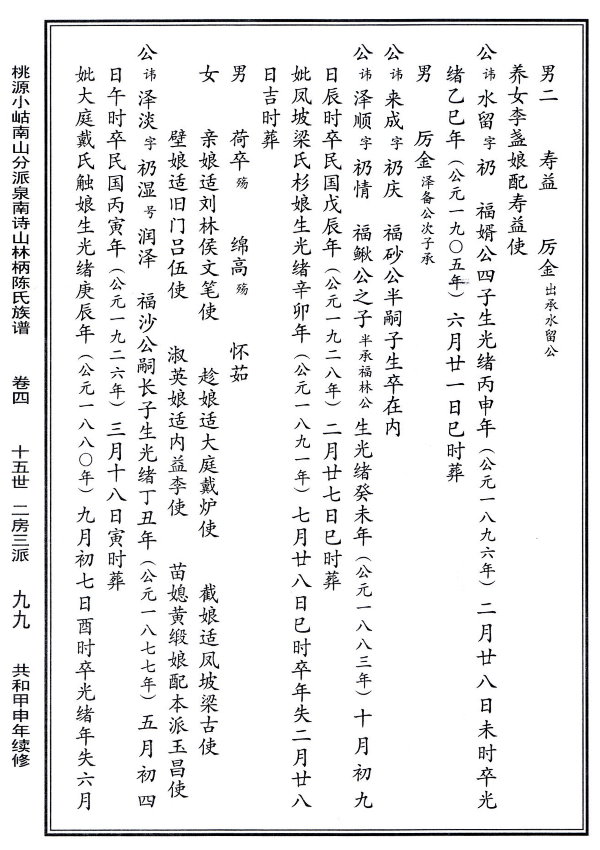 男二　寿益　厉金 出承水留公
养女李盏娘配寿益使
公 讳 水留 字 礽　福婿公四子生光绪丙申年（公元一八九六年）二月廿八日未时卒光
绪乙巳年（公元一九〇五年）六月廿一日巳时葬
男　厉金 泽备公次子承
公 讳 来成 字 礽庆　福砂公半嗣子生卒在内
公 讳 泽顺 字 礽情　福鳅公之子 半承福林公 生光绪癸未年（公元一八八三年）十月初九
日辰时卒民国戊辰年（公元一九二八年）二月廿七日巳时葬
妣凤坡梁氏杉娘生光绪辛卯年（公元一八九一年）七月廿八日巳时卒年失二月廿八
日吉时葬
男　荷卒 殇　绵高 殇　怀茹
女　亲娘适刘林侯文笔使　趁娘适大庭戴炉使　截娘适凤坡梁古使
壁娘适旧门吕伍使　淑英娘适内益李使　苗媳黄缎娘配本派玉昌使
公 讳 泽淡 字 礽湿 号 润泽　福沙公嗣长子生光绪丁丑年（公元一八七七年）五月初四
日午时卒民国丙寅年（公元一九二六年）三月十八日寅时葬
妣大庭戴氏触娘生光绪庚辰年（公元一八八〇年）九月初七日酉时卒光绪年失六月
桃源小岵南山分派泉南诗山林柄陈氏族谱　卷四　十五世　二房三派　九九　共和甲申年续修